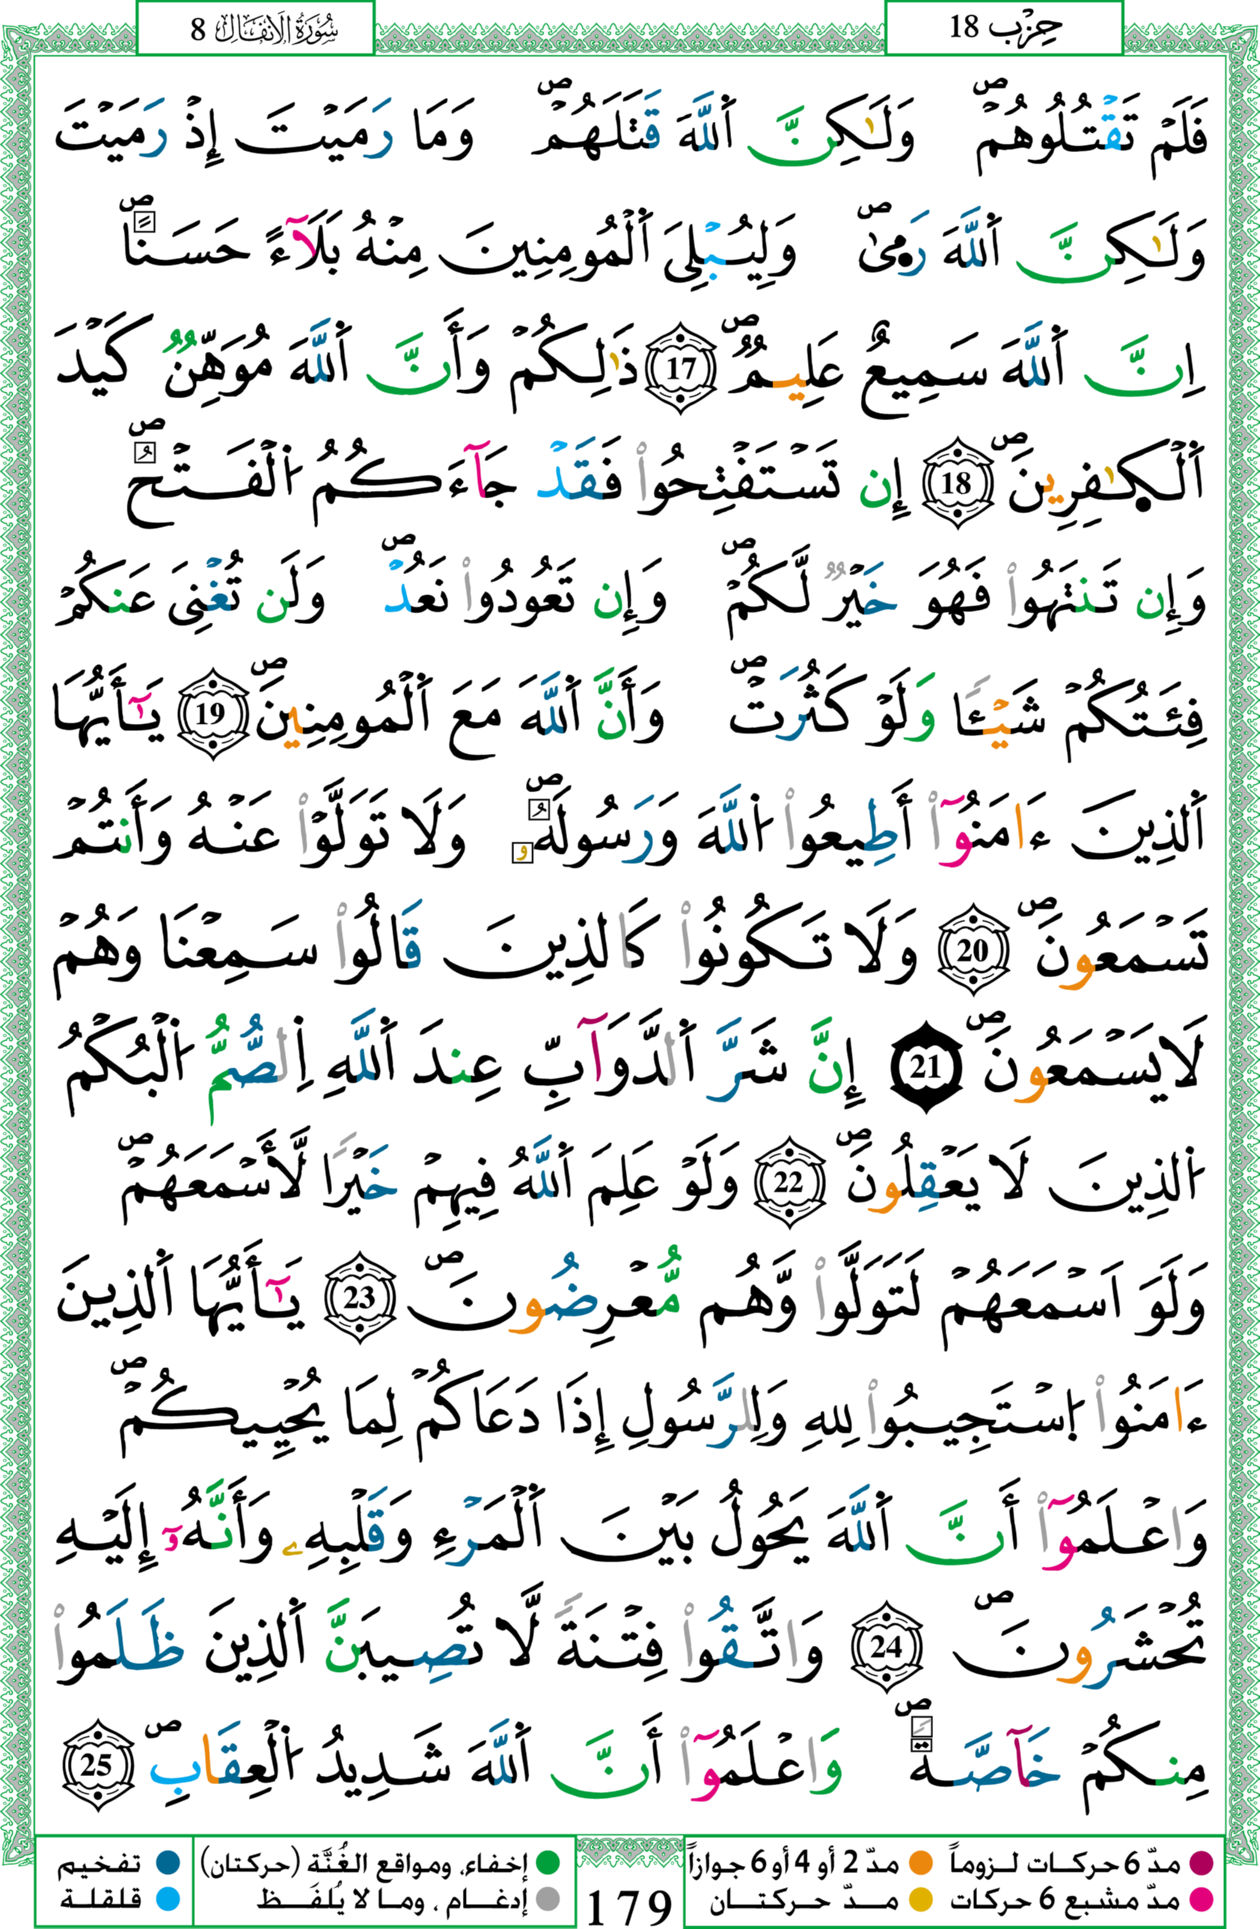 حِزْب 18
سُورَةُ الْأَنفَالِ 8
فَلَمْ تَقْتُلُوهُمْۖ وَلَٰكِنَّ اَ۬للَّهَ قَتَلَهُمْۖ وَمَا رَمَيْتَ إِذْ رَمَيْتَ
وَلَٰكِنَّ اَ۬للَّهَ رَم۪يٰۖ وَلِيُبْلِيَ اَ۬لْمُومِنِينَ مِنْهُ بَلَآءً حَسَناًۖ
اِنَّ اَ۬للَّهَ سَمِيعٌ عَلِيمٞۖ 17 ذَٰلِكُمْ وَأَنَّ اَ۬للَّهَ مُوَهِّنٞ كَيْدَ
اَ۬لْكٰ۪فِرِينَۖ 18 إِن تَسْتَفْتِحُواْ فَقَدْ جَآءَكُمُ اُ۬لْفَتْحُۖ
وَإِن تَنتَهُواْ فَهُوَ خَيْرٞ لَّكُمْۖ وَإِن تَعُودُواْ نَعُدْۖ وَلَن تُغْنِيَ عَنكُمْ
فِئَتُكُمْ شَيْـٔاٗ وَلَوْ كَثُرَتْۖ وَأَنَّ اَ۬للَّهَ مَعَ اَ۬لْمُومِنِينَۖ 19 يَٰٓأَيُّهَا
اَ۬لذِينَ ءَامَنُوٓاْ أَطِيعُواْ اُ۬للَّهَ وَرَسُولَهُۥۖ وَلَا تَوَلَّوْاْ عَنْهُ وَأَنتُمْ
تَسْمَعُونَۖ 20 وَلَا تَكُونُواْ كَالذِينَ قَالُواْ سَمِعْنَا وَهُمْ
لَا يَسْمَعُونَۖ 21 إِنَّ شَرَّ اَ۬لدَّوَآبِّ عِندَ اَ۬للَّهِ اِ۬لصُّمُّ اُ۬لْبُكْمُ
اُ۬لذِينَ لَا يَعْقِلُونَۖ 22 وَلَوْ عَلِمَ اَ۬للَّهُ فِيهِمْ خَيْراٗ لَّأَسْمَعَهُمْۖ
وَلَوَ اَسْمَعَهُمْ لَتَوَلَّواْ وَّهُم مُّعْرِضُونَۖ 23 يَٰٓأَيُّهَا اَ۬لذِينَ
ءَامَنُواْ اُ۪سْتَجِيبُواْ لِلهِ وَلِلرَّسُولِ إِذَا دَعَاكُمْ لِمَا يُحْيِيكُمْۖ
وَاعْلَمُوٓاْ أَنَّ اَ۬للَّهَ يَحُولُ بَيْنَ اَ۬لْمَرْءِ وَقَلْبِهِۦ وَأَنَّهُۥٓ إِلَيْهِ
تُحْشَرُونَۖ 24 وَاتَّقُواْ فِتْنَةٗ لَّا تُصِيبَنَّ اَ۬لذِينَ ظَلَمُواْ
مِنكُمْ خَآصَّةٗۖ وَاعْلَمُوٓاْ أَنَّ اَ۬للَّهَ شَدِيدُ اُ۬لْعِقَابِۖ 25
مدّ 6 حركات لـزوماً مدّ 2 أو 4 أو 6 جوازاً إخفاء، ومواقع الغُنَّة (حركتان) تفخيم
مدّ مشبع 6 حركات مـدّ حـركتـان إدغـام ، ومـا لا يُلفَـظ قلقلة
179